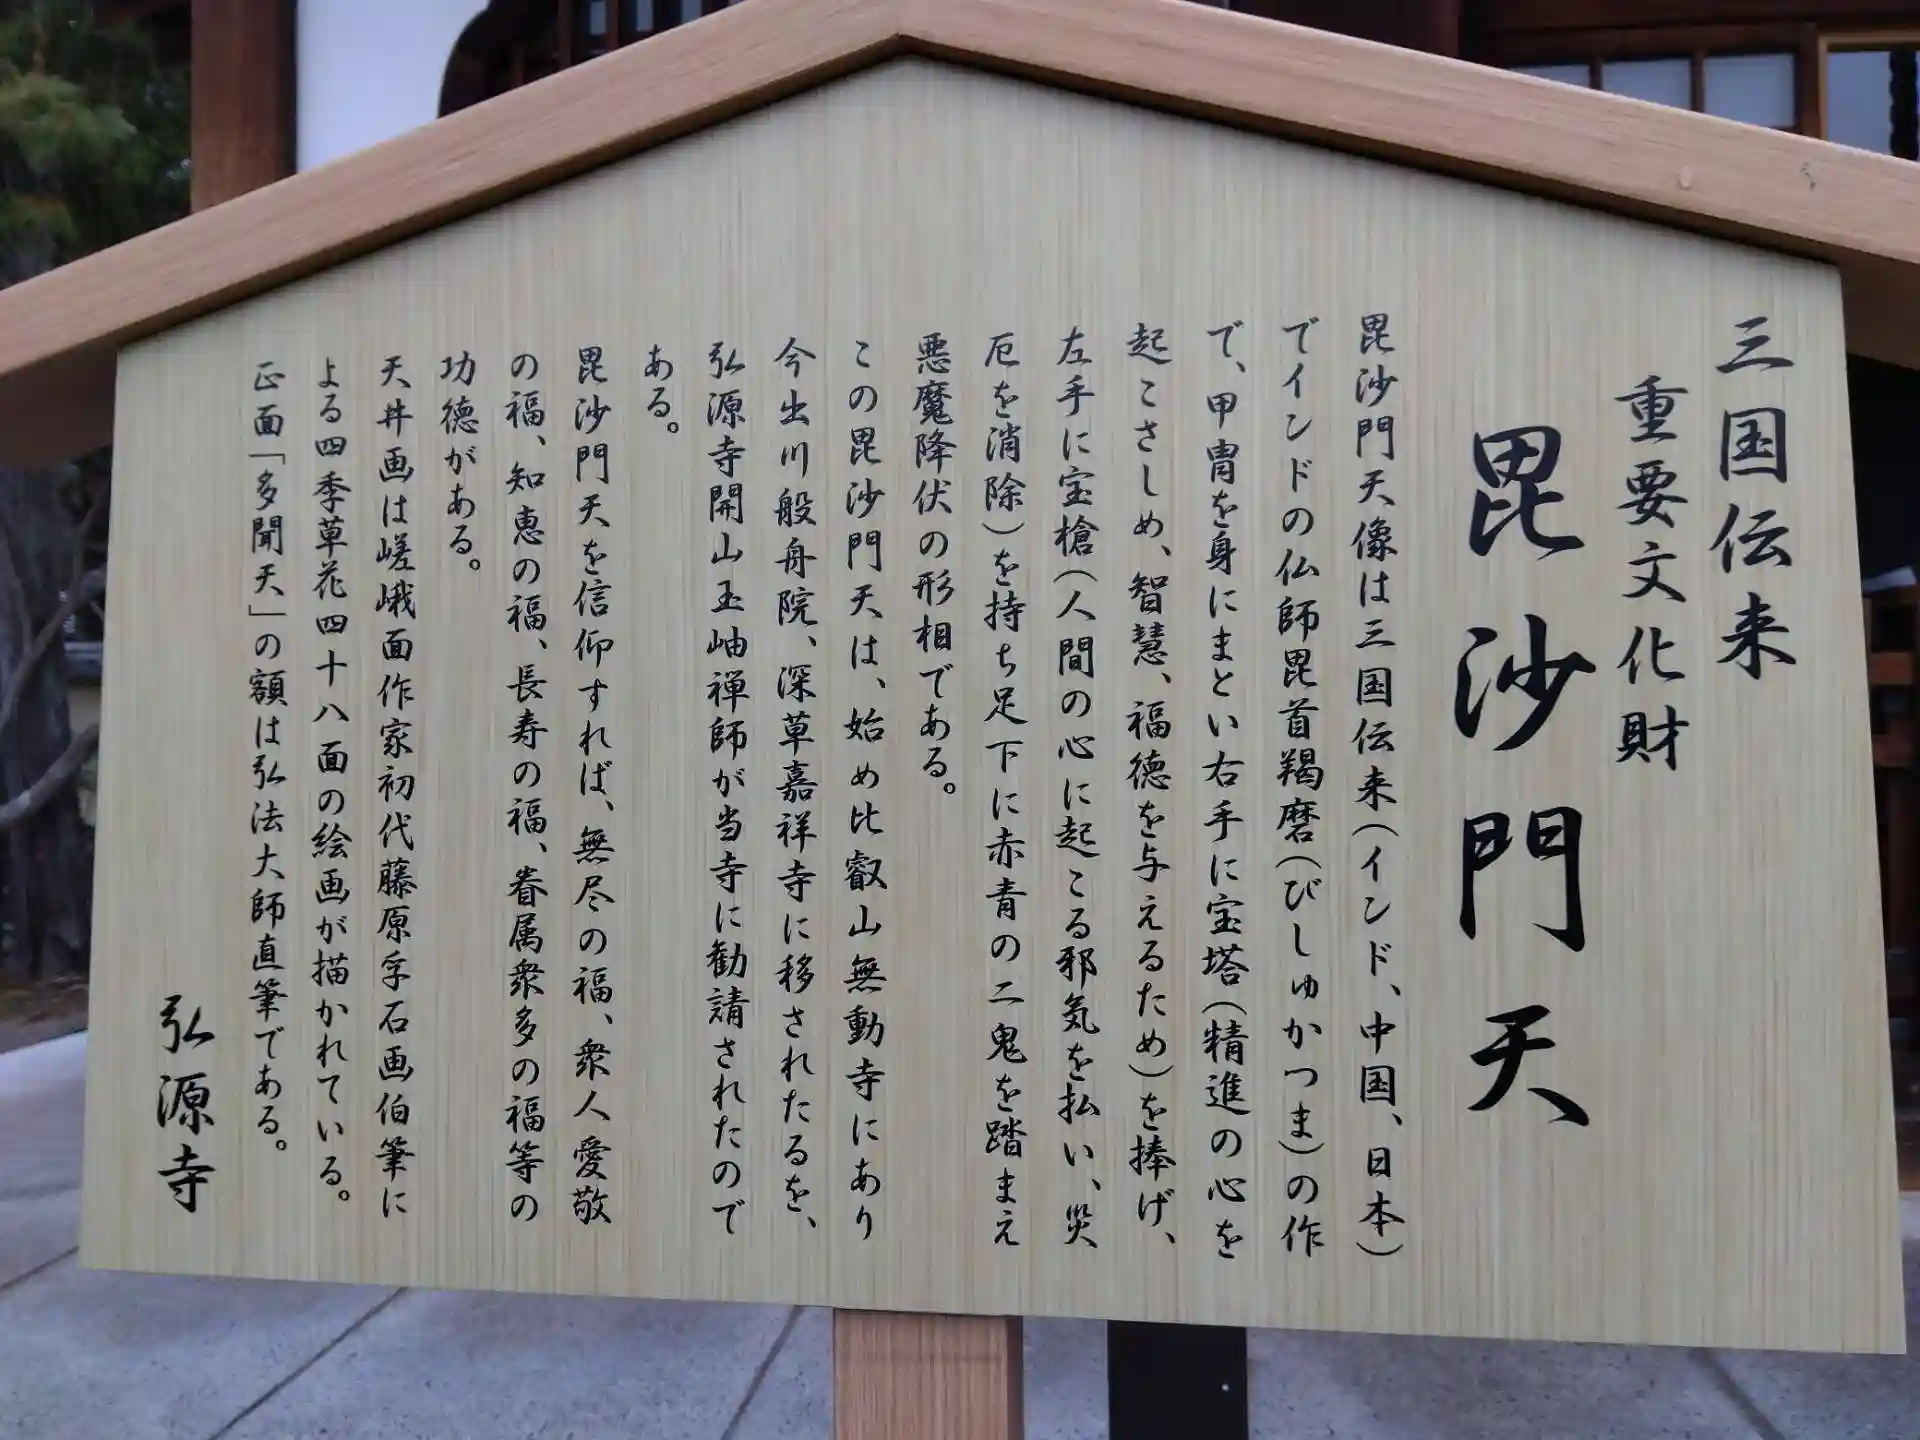 三国伝来
重要文化財
毘沙門天
毘沙門天像は三国伝来(インド、中国、日本)
でインドの仏師毘首羯磨(びしゅかつま)の作
で、甲冑を身にまとい右手に宝塔(精進の心を
起こさしめ、智慧、福徳を与えるため)を捧げ、
左手に宝槍(人間の心に起こる邪気を払い、災
厄を消除)を持ち足下に赤青の二鬼を踏まえ
悪魔降伏の形相である。
この毘沙門天は、始め比叡山無動寺にあり
今出川般舟院、深草嘉祥寺に移されたるを、
弘源寺開山玉岫禅師が当寺に勧請されたので
ある。
毘沙門天を信仰すれば、無尽の福、衆人愛敬
の福、知恵の福、長寿の福、眷属衆多の福等の
功徳がある。
天井画は嵯峨面作家初代藤原孚石画伯筆に
よる四季草花四十八面の絵画が描かれている。
正面「多聞天」の額は弘法大師直筆である。
弘源寺